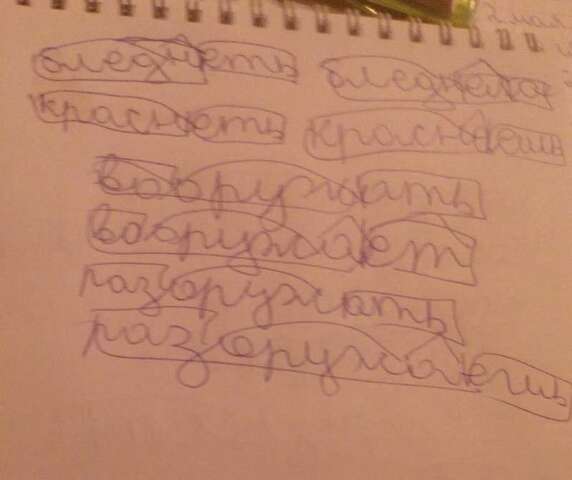 бледнеть бледнеют
краснеть краснеешь
вооружать
вооружает
разоружать
разоружаешь